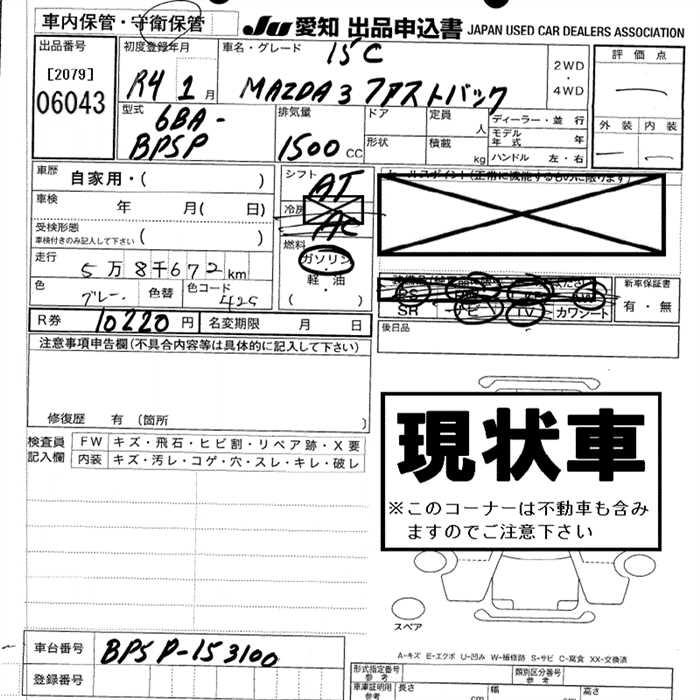 車内保管・守衛保管
JU 愛知 出品申込書 JAPAN USED CAR DEALERS ASSOCIATION
出品番号
[2079]
06043
初度登録年月
R4 1 月
車名・グレード
15C
MAZDA3 ファストバック
2WD
・
4WD
評価点
外装 内装
型式
6BA-
BP5P
排気量
1500 CC
ドア
形状
定員 人
積載 kg
ディーラー・並行
モデル年式 年
ハンドル 左・右
車歴 自家用・( )
車検 年 月( 日)
受検形態
車検付きのみ記入して下さい ( )
走行
5万8千672km
色
グレー
色替
色コード
42S
シフト
AT
冷房
AC
燃料
ガソリン
・
軽油
( )
セールスポイント(正常に機能するものに限ります)
SR ナビ TV カワシート
新車保証書
有・無
後日品
R券 10220 円 名変期限 月 日
注意事項申告欄(不具合内容等は具体的に記入して下さい)
修復歴 有 (箇所 )
検査員
記入欄
FW キズ・飛石・ヒビ割・リペア跡・X要
内装 キズ・汚レ・コゲ・穴・スレ・キレ・破レ
現状車
※このコーナーは不動車も含み
ますのでご注意下さい
スペア
A-キズ E-エクボ U-凹み W-補修跡 S-サビ C-腐食 XX-交換済
車台番号 BP5P-153100
登録番号
形式指定番号
参考
類別区分番号
参考
車庫証明用
参考
長さ
幅
高さ